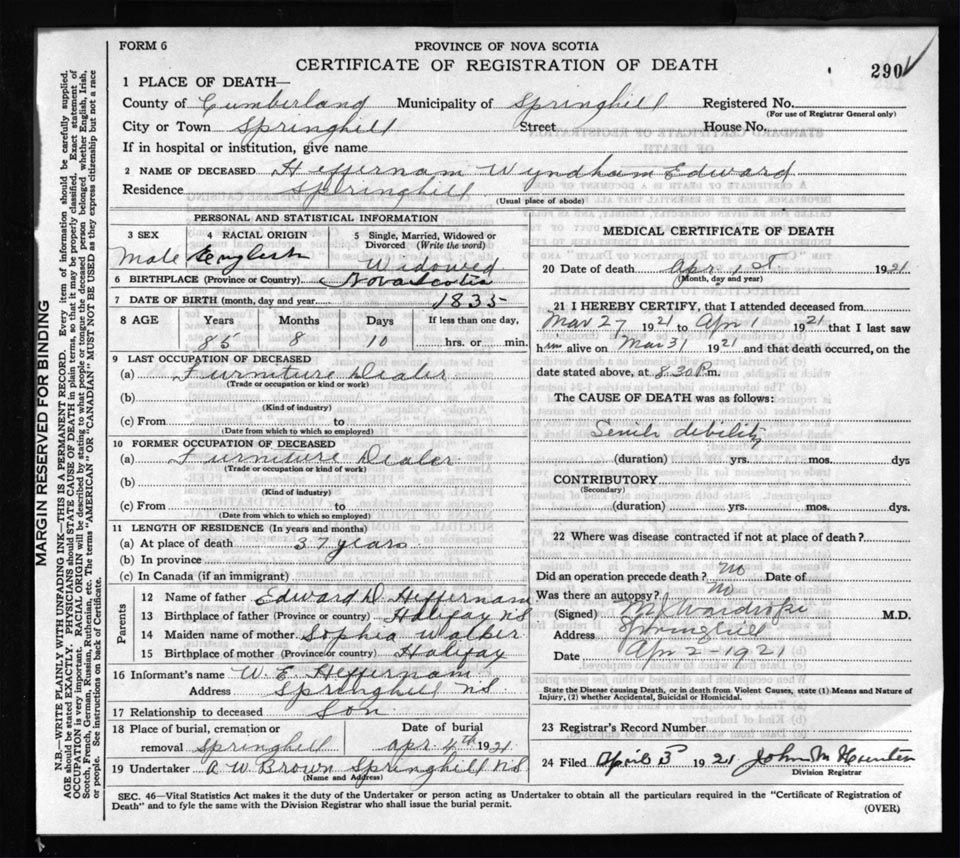 FORM 6
PROVINCE OF NOVA SCOTIA
CERTIFICATE OF REGISTRATION OF DEATH
290
1 PLACE OF DEATH—
County of Cumberland Municipality of Springhill Registered No.
(For use of Registrar General only)
City or Town Springhill Street House No.
If in hospital or institution, give name
2 NAME OF DECEASED Heffernam Wyndham Edward
Residence Springhill
(Usual place of abode)
PERSONAL AND STATISTICAL INFORMATION
3 SEX 4 RACIAL ORIGIN 5 Single, Married, Widowed or
Divorced (Write the word)
Male English Widowed
6 BIRTHPLACE (Province or Country) Nova Scotia
7 DATE OF BIRTH (month, day and year) 1835
8 AGE Years Months Days If less than one day,
85 8 10 hrs. or min.
9 LAST OCCUPATION OF DECEASED
(a) Furniture Dealer
(Trade or occupation or kind or work)
(b)
(Kind of industry)
(c) From to
(Date from which to which so employed)
10 FORMER OCCUPATION OF DECEASED
(a) Furniture Dealer
(Trade or occupation or kind of work)
(b)
(Kind of industry)
(c) From to
(Date from which to which so employed)
11 LENGTH OF RESIDENCE (In years and months)
(a) At place of death 37 years
(b) In province
(c) In Canada (if an immigrant)
Parents
12 Name of father Edward D. Heffernam
13 Birthplace of father (Province or country) Halifax NS
14 Maiden name of mother Sophia Walker
15 Birthplace of mother (Province or country) Halifax
16 Informant's name W. E. Heffernam
Address Springhill NS
17 Relationship to deceased Son
18 Place of burial, cremation or Date of burial
removal Springhill Apr 4th 1921
19 Undertaker A W Brown Springhill NS
(Name and Address)
MEDICAL CERTIFICATE OF DEATH
20 Date of death Apr 1st. 1921
(Month, day and year)
21 I HEREBY CERTIFY, that I attended deceased from
Mar 27 1921 to Apr 1 1921 that I last saw
him alive on Mar 31 1921 and that death occurred, on the
date stated above, at 8.30 P.m.
The CAUSE OF DEATH was as follows:
Senile debility
(duration) yrs. mos. dys
CONTRIBUTORY
(Secondary)
(duration) yrs. mos. dys.
22 Where was disease contracted if not at place of death?
Did an operation precede death? no Date of
Was there an autopsy? No
(Signed) Wardrope M.D.
Address Springhill
Date Apr 2 - 1921
State the Disease causing Death, or in death from Violent Causes, state (1) Means and Nature of
Injury, (2) whether Accidental, Suicidal or Homicidal.
23 Registrar's Record Number
24 Filed April 5 1921 John M Hunter
Division Registrar
SEC. 46—Vital Statistics Act makes it the duty of the Undertaker or person acting as Undertaker to obtain all the particulars required in the "Certificate of Registration of
Death" and to fyle the same with the Division Registrar who shall issue the burial permit.
(OVER)
MARGIN RESERVED FOR BINDING
N.B.—WRITE PLAINLY WITH UNFADING INK—THIS IS A PERMANENT RECORD. Every item of information should be carefully supplied.
AGE should be stated EXACTLY. PHYSICIANS should STATE CAUSE OF DEATH in plain terms, so that it may be properly classified. Exact statement of
OCCUPATION is very important. RACIAL ORIGIN will be described by stating to what people or tongue the deceased person belonged whether English, Irish,
Scotch, French, German, Russian, Ruthenian, etc. The terms "AMERICAN" OR "CANADIAN" MUST NOT BE USED as they express citizenship but not a race
or people. See instructions on back of Certificate.